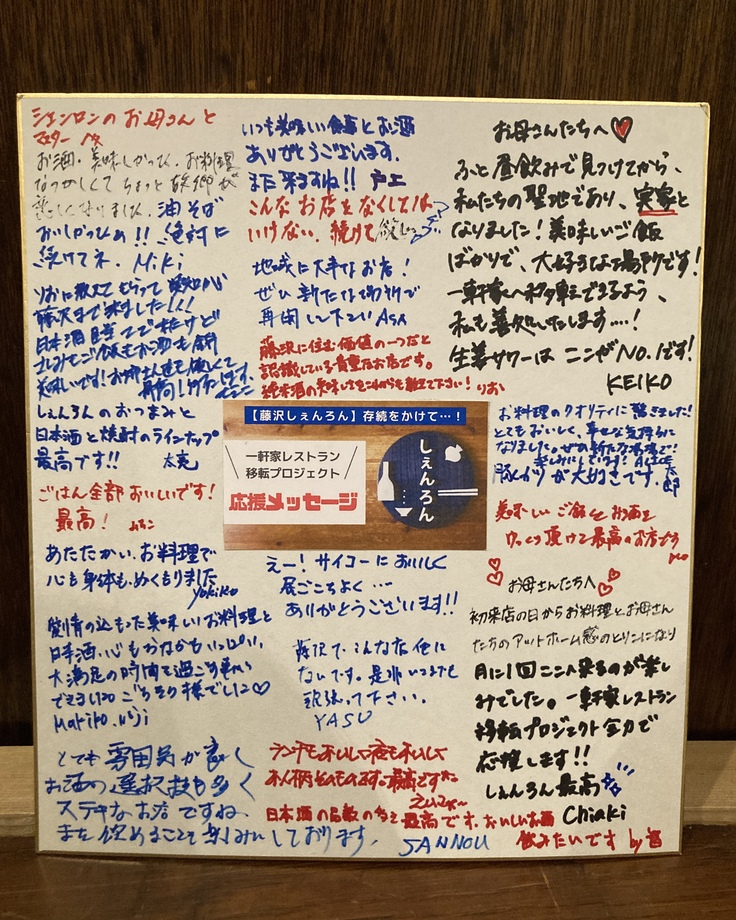 シェンロンのお母さんと
マスター
お酒・美味しかった。お料理
なつかしくてちょっと故郷が
恋しくなりました。油そば
おいしかったぁ!!絶対に
続けてネ。Miki
日本酒目当てで来たけど
しぇんろんのおつまみと
日本酒と焼酎のラインナップ
最高です!! 太亮
ごはん全部おいしいです!
最高!
あたたかい、お料理で
心も身体も、ぬくもりました
Yukiko
愛情の込もった美味しいお料理と
日本酒、心もおなかもいっぱい。
大満足の時間を過ごす事が
できました ごちそう様でした♡
Mariko
とても雰囲気が良く
お酒の選択技も多く
ステキなお店ですね。
また飲めることを楽しみにしております。
SANNOU
いつも美味しい食事とお酒
ありがとうございます。
また来ますね!! 戸上
こんなお店をなくしては
いけない。続けて欲しい
地域に大事なお店!
ぜひ新たな場所で
再開して下さい ASA
藤沢に住む価値の一つだと
認識している貴重なお店です。
純米酒の美味しさをこれからも教えて下さい! りお
【藤沢しぇんろん】存続をかけて…!
一軒家レストラン
移転プロジェクト
応援メッセージ
しぇんろん
えー!サイコーにおいしく
居ごこちよく…
ありがとうございます!!
藤沢で、こんな店他に
ないです。是非いつまでも
頑張って下さい。
YASU
ランチもおいしい夜もおいしい
最高です
日本酒の品数の多さ最高です。おいしいお酒
飲みたいです by
お母さんたちへ♡
ふと昼飲みで見つけてから、
私たちの聖地であり、実家と
なりました!美味しいご飯
ばかりで、大好きな場所です!
一軒家へ移転できるよう、
私も善処いたします…!
生姜サワーはここがNo.1です!
KEIKO
お料理のクオリティに驚きました!
とてもおいしく、幸せな気持ちに
なりました。ぜひ新たな場所で!
楽しみにしています!
豚しかりが大好きです。
美味しいご飯とお酒を
ゆっくり頂けて最高のお店です
お母さんたちへ♡
初来店の日からお料理とお母さん
たちのアットホーム感のとりこになり
月に1回ここへ来るのが楽し
みでした。一軒家レストラン
移転プロジェクト全力で
応援します!!
しぇんろん最高
Chiaki